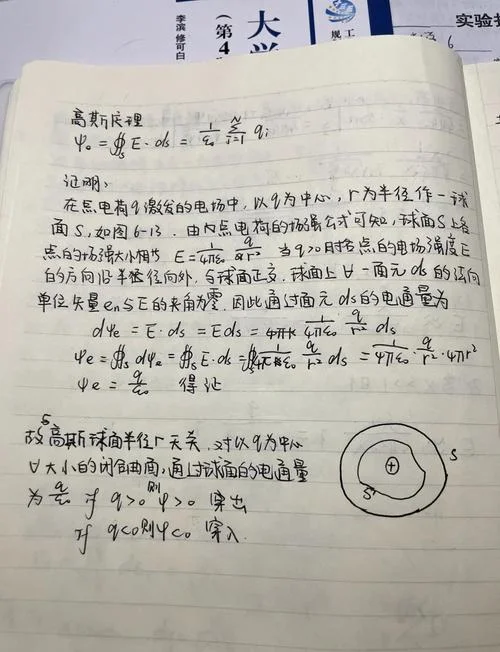 李滨 修可白
大学
(第4
规 工
实验报
高斯定理
Ψe = ∯s E·ds = 1/ε₀ Σ(i=1→N) qi
证明:
在点电荷q激发的电场中,以q为中心,r为半径作一球
面S,如图6-13.由内点电荷的场强公式可知,球面S上各
点的场强大小相等 E = 1/4πε₀ q/r² 当q>0时各点的电场强度E
的方向沿半径径向外,与球面正交.球面上∀一面元ds的法向
单位矢量en与E的夹角为零.因此通过面元ds的电通量为
dψe = E·ds = Eds = 1/4πε₀ q/r² ds
ψe = ∯s dψe = ∯s E·ds = ∯ 1/4πε₀ q/r² ds = 1/4πε₀ · q/r² · 4πr²
ψe = q/ε₀ 得证
故与高斯球面半径r无关.对以q为中心
∀大小的闭合曲面,通过球面的电通量
为 q/ε₀ if q>0则ψ>0 穿出
if q<0则ψ<0 穿入
S
S'